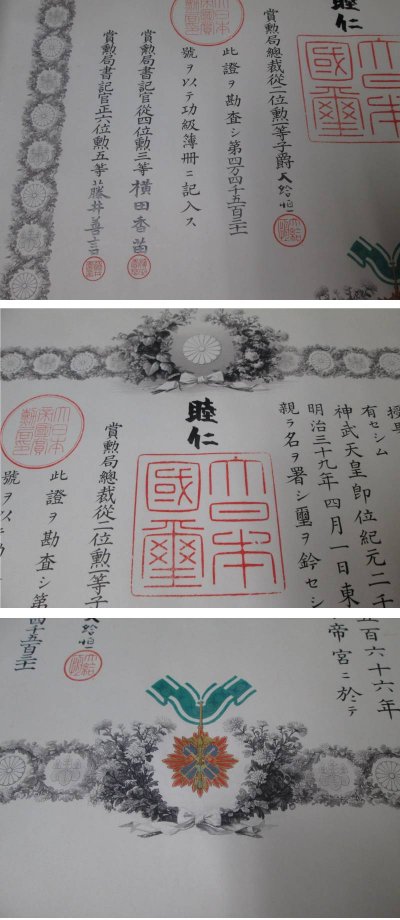 睦仁
大日本國璽
賞勲局總裁從二位勲一等子爵大給恒
大日本帝國賞勲局印
此證ヲ勘査シ第四万四千五百三十一
號ヲ以テ功級簿冊ニ記入ス
賞勲局書記官從四位勲三等横田香苗
賞勲局書記官正六位勲五等藤井善言
有セシム
神武天皇即位紀元二千
明治三十九年四月一日東
親ラ名ヲ署シ璽ヲ鈐セシ
睦仁
大日本國璽
賞勲局總裁從二位勲一等子
大日本帝國賞勲局印
此證ヲ勘査シ第
號ヲ以テ
五百六十六年
帝宮ニ於テ
大給恒
四千五百三十一